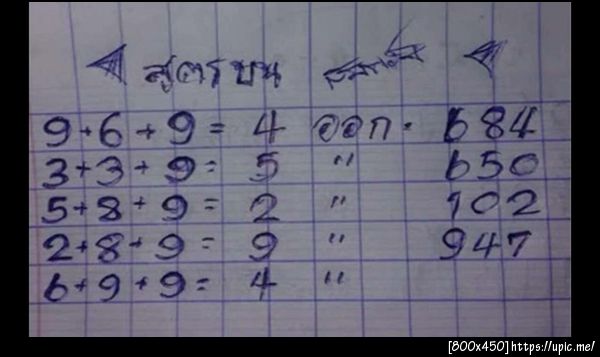 สูตรบน
9+6+9 = 4 ออก. 684
3+3+9 = 5 " 650
5+8+9 = 2 " 102
2+8+9 = 9 " 947
6+9+9 = 4 "
[800x450] https://upic.me/